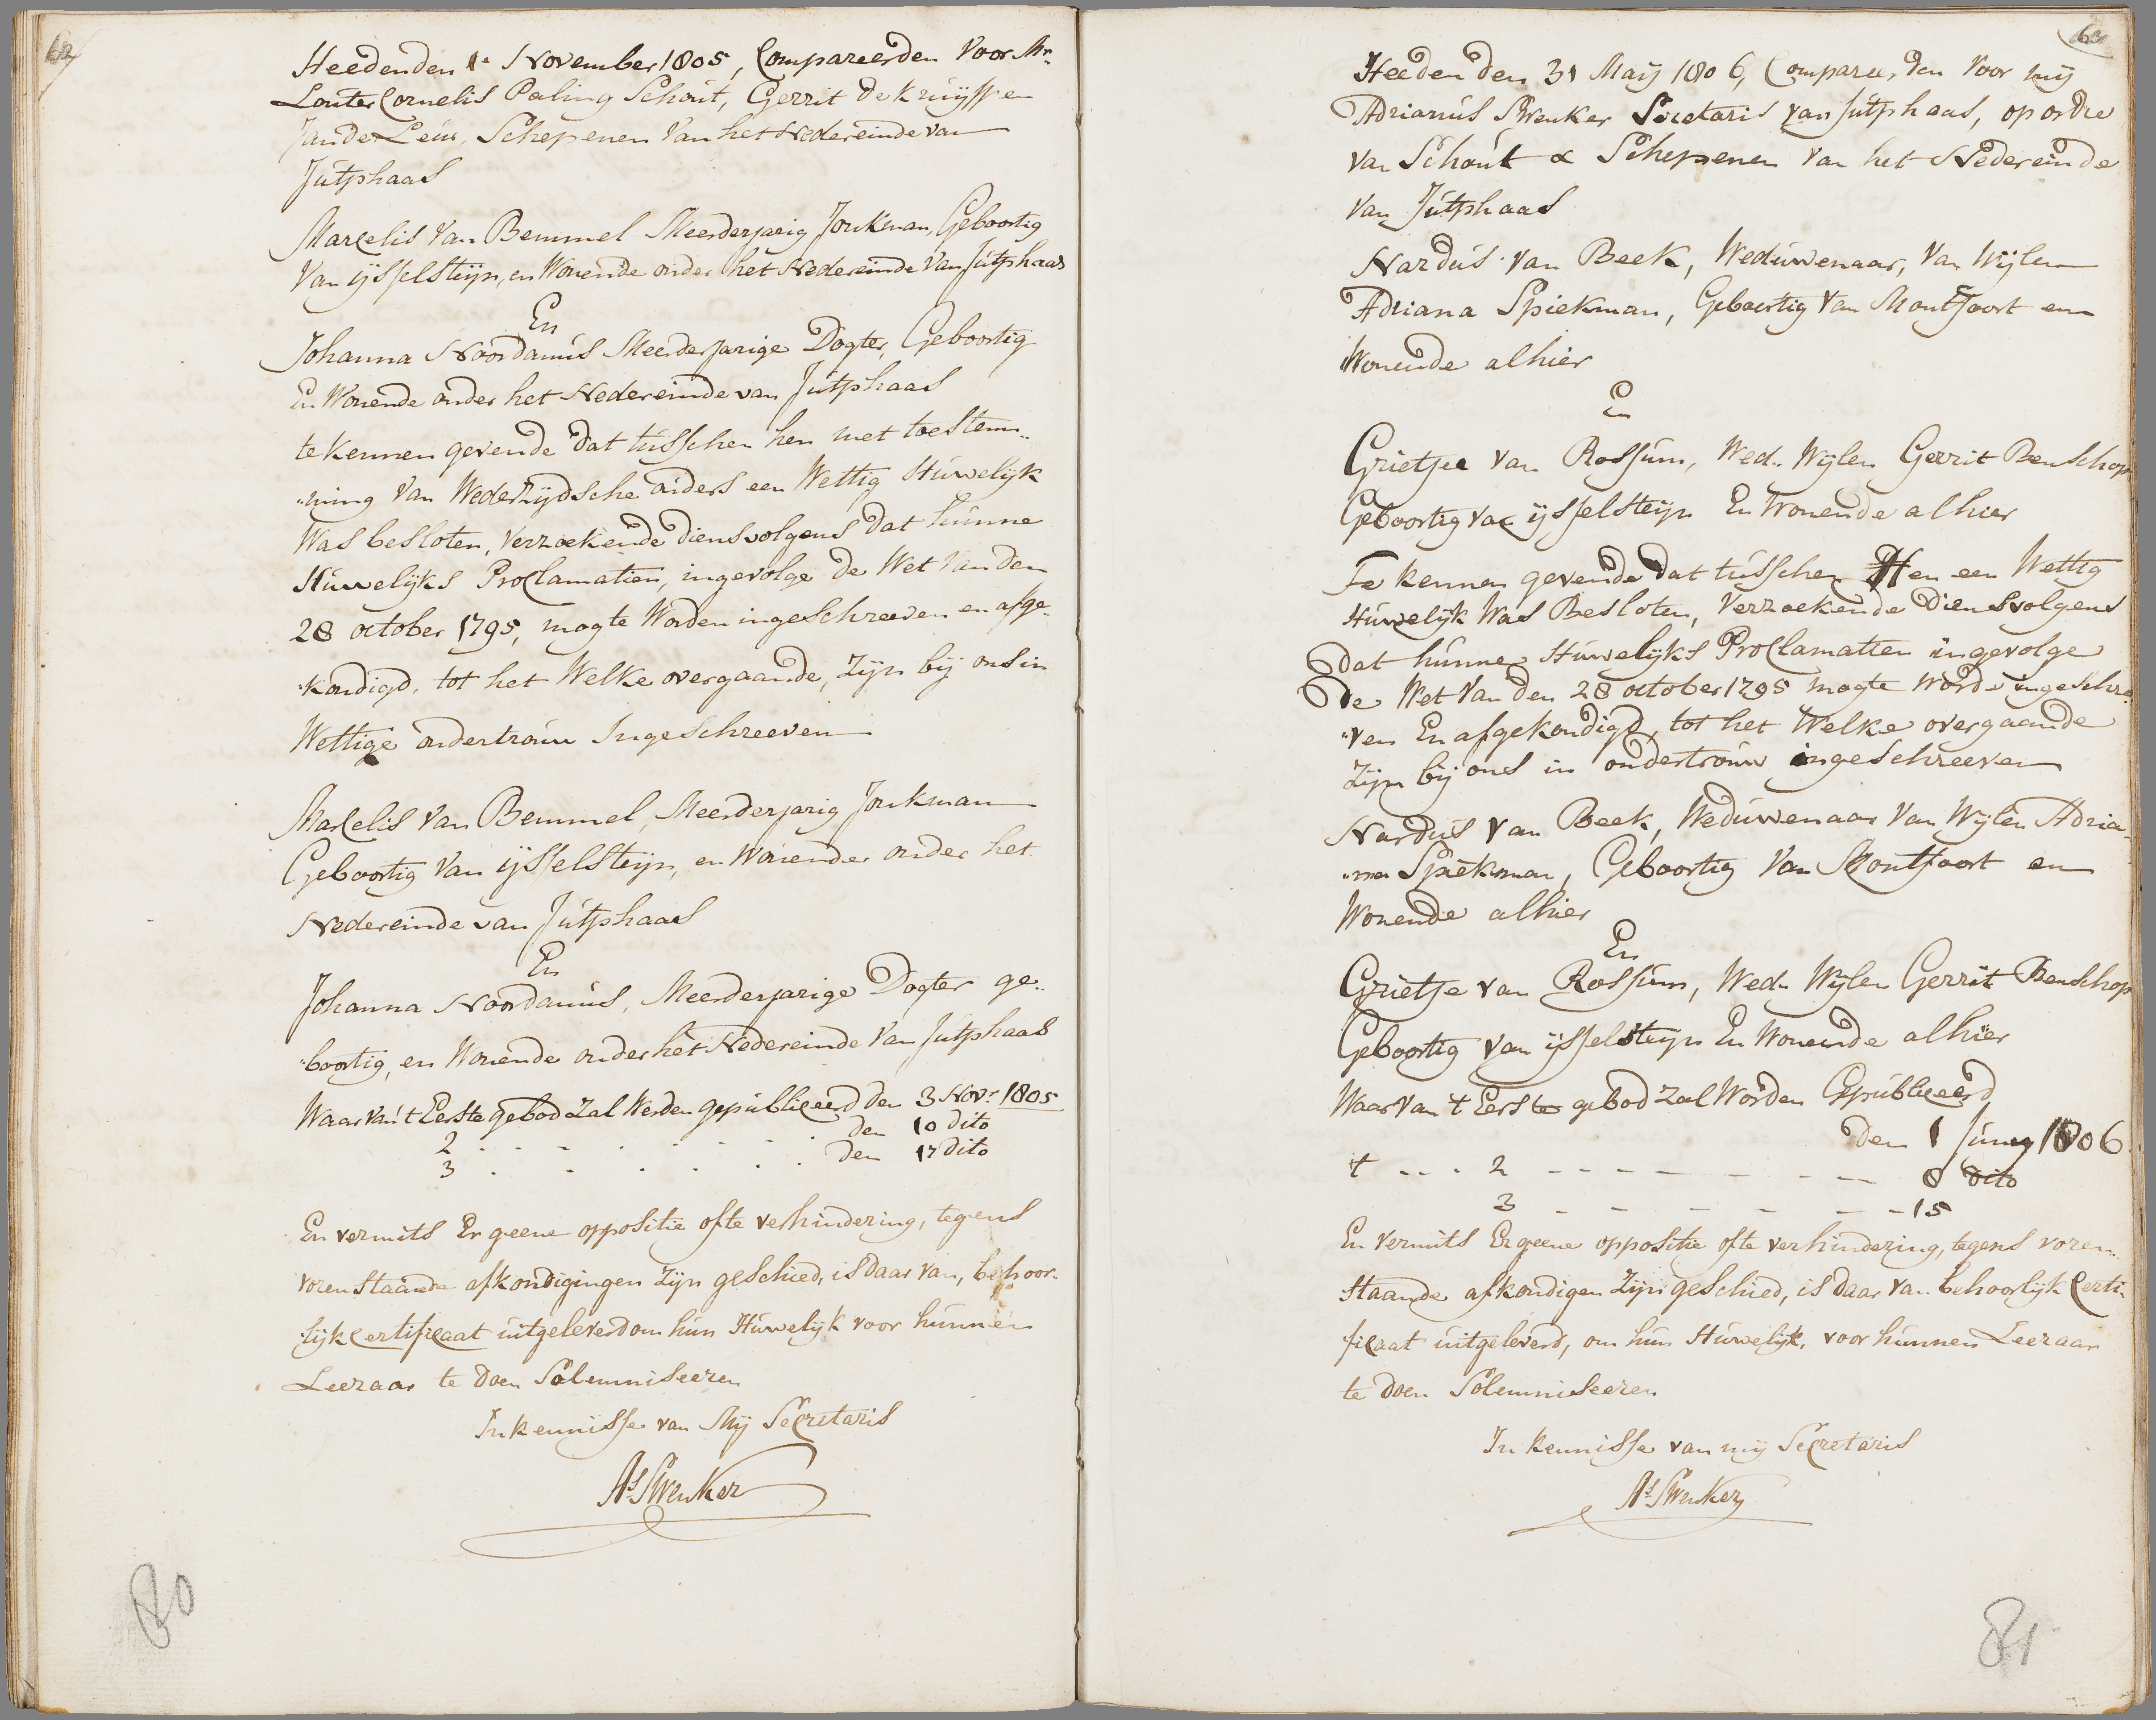 62
Heeden den 1e November 1805, Compareerden voor Mr.
Louter Cornelis Paling Schout, Gerrit de Kruijff en
Jan de Leur, Schepenen van het Nedereinde van
Jutphaas
Marcelis van Bemmel Meerderjarig Jonkman, Geboortig
van ijsselsteijn, en Wonende onder het Nedereinde van Jutphaas
En
Johanna Noordanus Meerderjarige Dogter, Geboortig
En Wonende onder het Nedereinde van Jutphaas
te kennen gevende dat tusschen hen met toestem„
„ming van Wederzijdsche ouders een Wettig Huwelijk
Was besloten, verzoekende diensvolgens dat hunne
Huwelijks Proclamatien, ingevolge de Wet van den
28 october 1795, mogte Worden ingeschreeven en afge„
„kondigd, tot het Welke overgaande, Zijn bij ons in
Wettige ondertrouw Ingeschreeven
Marcelis van Bemmel, Meerderjarig Jonkman
Geboortig van ijsselsteijn, en Wonende onder het
Nedereinde van Jutphaas
En
Johanna Noordanus, Meerderjarige Dogter ge„
„boortig, en Wonende onder het Nedereinde van Jutphaas
Waarvan 't Eerste gebod zal Werden gepubliceerd den 3 Novr. 1805
2 . . . . . . . den 10 dito
3 . . . . . . . den 17 dito
En vermits Er geene oppositie ofte verhindering, tegens
vorenstaande afkondigingen zijn geschied, is daar van, behoor„
„lijk Certificaat uitgeleverd om hun Huwelijk voor hunnen
Leeraar te doen Solemniseeren
In kennisse van Mij Secretaris
As. Swenker
80
63
Heeden den 31 Maij 1806, Compareerden voor mij
Adrianus Swenker Secretaris van Jutphaas, op ordre
van Schout & Schepenen van het Nedereinde
van Jutphaas
Nardus van Beek, Weduwenaar, van Wijlen
Adriana Spiekman, Geboortig van Montfoort en
Wonende alhier
En
Grietjee van Rossum, Wed. Wijlen Gerrit Benschop
Geboortig van ijsselsteijn En Wonende alhier
Te kennen gevende dat tusschen Hen een Wettig
Huwelijk Was Besloten, verzoekende diensvolgens
dat hunne Huwelijks Proclamatien ingevolge
De Wet van den 28 october 1795 mogte worde ingeschre„
„ven En afgekondigd, tot het Welke overgaande
zijn bij ons in ondertrouw ingeschreeven
Nardus van Beek, Weduwenaar van Wijlen Adria„
„na Spiekman, Geboortig van Montfoort en
Wonende alhier
En
Grietje van Rossum, Wed. Wijlen Gerrit Benschop
Geboortig van ijsselsteijn En Wonende alhier
Waarvan 't Eerste gebod zal Worden Gepubliceerd
den 1 Junij 1806.
't - - - 2 - - - - - - - 8 dito
3 - - - - - - - 15
En vermits Er geene oppositie ofte verhindering, tegens voren„
staande afkondigen zijn geschied, is daar van behoorlijk Certi„
ficaat uitgeleverd, om hun Huwelijk, voor hunnen Leeraar
te doen Solemniseeren
In kennisse van mij Secretaris
As. Swenker
81